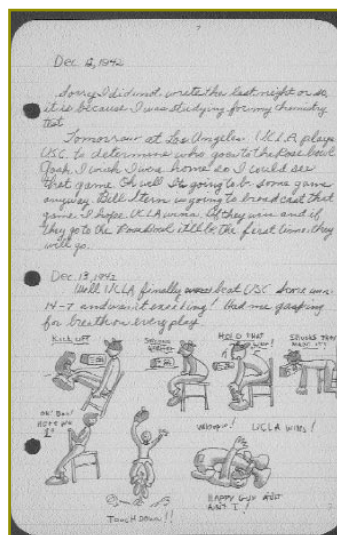 Dec 12, 1942
Sorry I did not wrote the last night or so,
it is because I was studying for my chemistry
test
Tomorrow at Los Angeles, UCLA plays
USC. to determine who goes to the Rose bowl
Gosh I wish I was home so I could see
that game. Oh well It's going to be some game
anyway. Bill Stern is going to broadcast that
game I hope UCLA wins. If they win and if
they go to the Rose bowl it'll be the first time they
will go.
Dec. 13, 1942
Well UCLA finally beat USC Score was
14-7 and was it exciting! Had me gasping
for breath on every play
KICK OFF
SECOND QUARTER
HOLD THAT
OH! BOY!
TOUCH DOWN!!
Whoopie!
UCLA WINS!
HAPPY GUY AIN'T
AIN'T I!